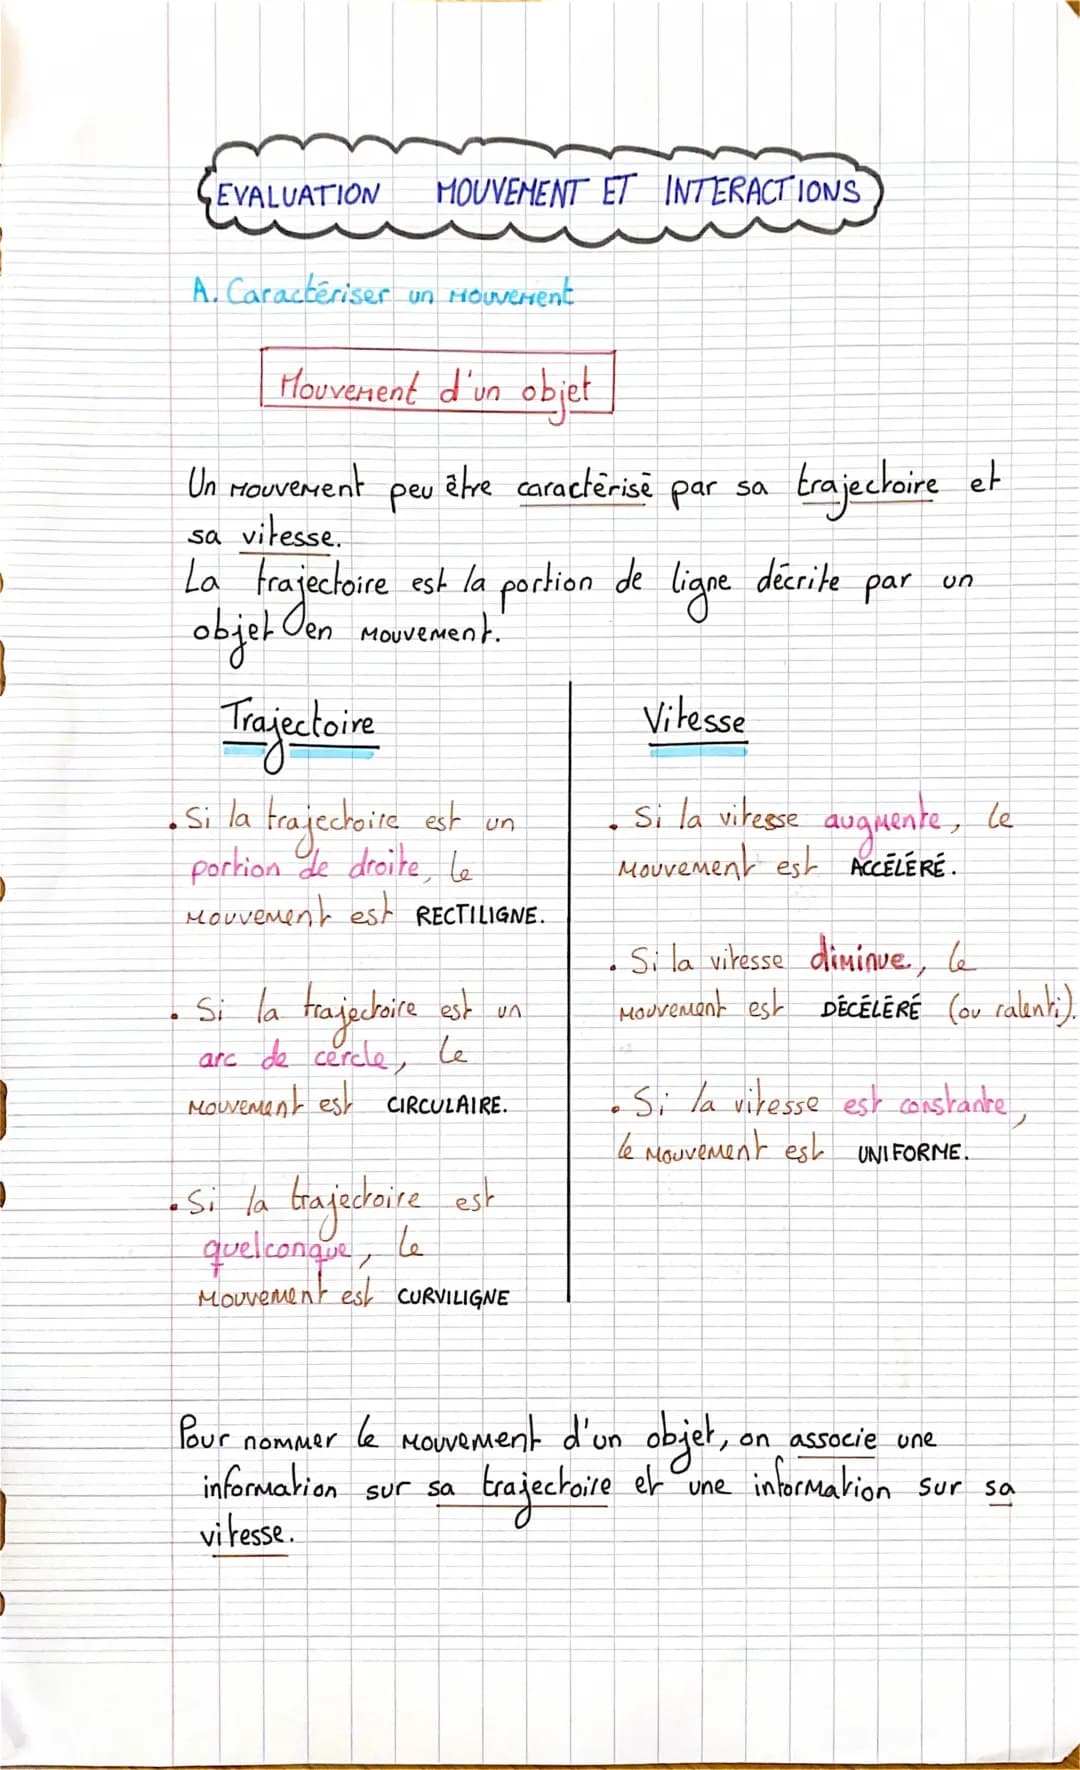 EVALUATION MOUVEMENT ET INTERACTIONS
A. Caractériser un mouvement
Mouvement d'un objet
Un mouvement peu être caractérisé par sa trajectoire et
sa vitesse.
La trajectoire est la portion de ligne décrite par un
objet en mouvement.
Trajectoire
. Si la trajectoire est un
portion de droite, le
mouvement est RECTILIGNE.
. Si la trajectoire est un
arc de cercle, le
mouvement est CIRCULAIRE.
. Si la trajectoire est
quelconque, le
mouvement est CURVILIGNE
Vitesse
. Si la vitesse augmente, le
mouvement est ACCÉLÉRÉ.
. Si la vitesse diminue, le
mouvement est DÉCÉLÉRÉ (ou ralenti).
. Si la vitesse est constante,
le mouvement est UNIFORME.
Pour nommer le mouvement d'un objet, on associe une
information sur sa trajectoire et une information sur sa
vitesse.